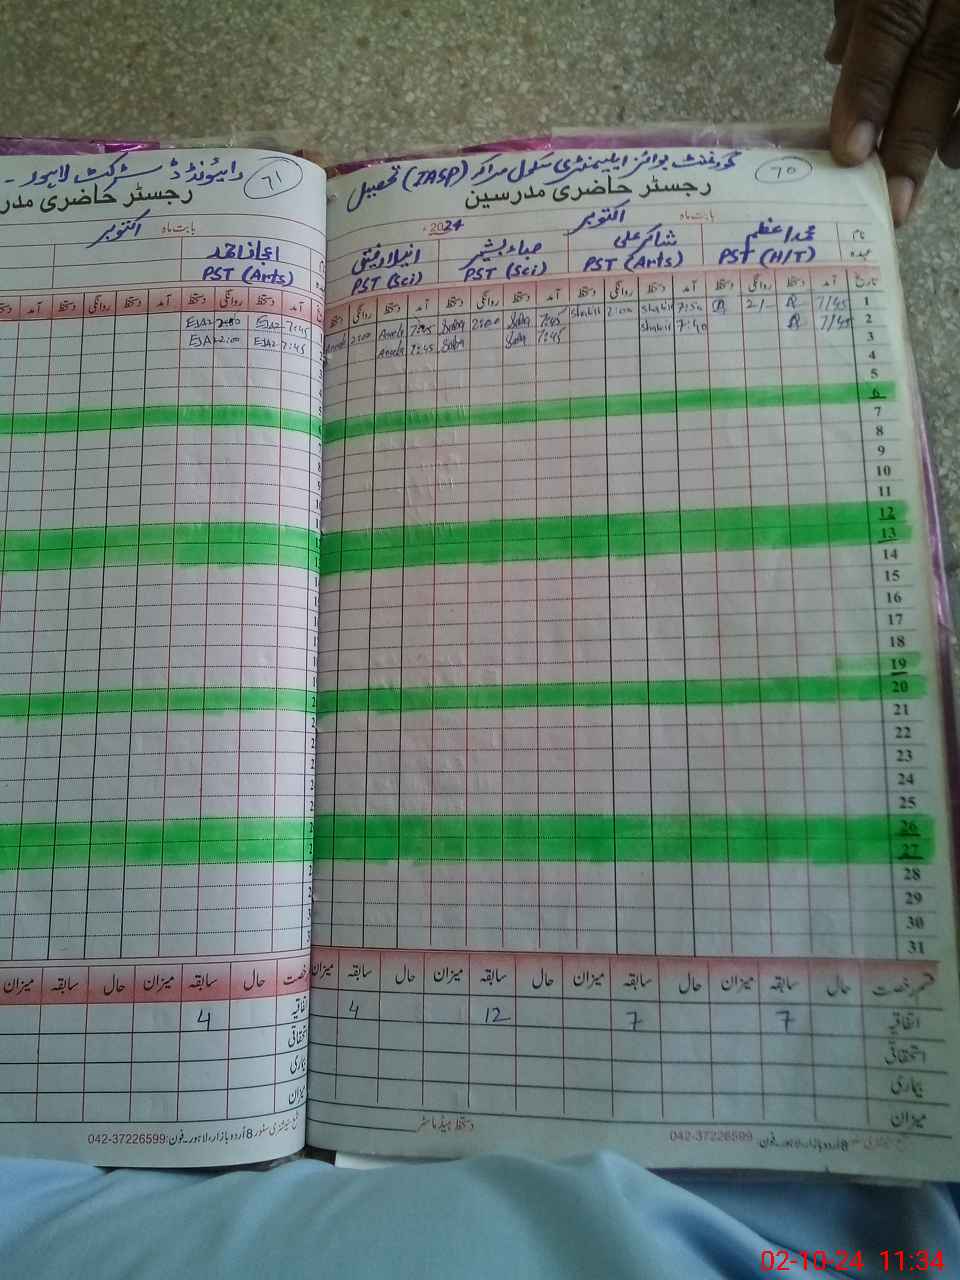 70
گورنمنٹ بوائز ایلیمنٹری سکول مراکہ (IASP) تحصیل
رجسٹر حاضری مدرسین
بابت ماہ اکتوبر 2024ء
نام محمد اعظم شاکر علی صباء بشیر انیلا رفیق
عہدہ PST (H/T) PST (Arts) PST (Sci) PST (Sci)
تاریخ آمد دستخط روانگی دستخط آمد دستخط روانگی دستخط آمد دستخط روانگی دستخط آمد دستخط روانگی دستخط
1 7/45 2/- 7:50 Shakir 2:00 Shakir 7:45 Saba 2:00 Saba 7:45 Aneela 2:00 Aneela
2 7/45 7:40 Shakir 7:45 Saba Saba 7:45 Aneela
3
4
5
6
7
8
9
10
11
12
13
14
15
16
17
18
19
20
21
22
23
24
25
26
27
28
29
30
31
قسم رخصت حال سابقہ میزان حال سابقہ میزان حال سابقہ میزان حال سابقہ میزان
اتفاقیہ 7 7 12 4
استحقاقی
بیماری
میزان
دستخط ہیڈماسٹر
8 اُردو بازار، لاہور۔ فون: 042-37226599
61
رائیونڈ ڈسٹرکٹ لاہور۔
رجسٹر حاضری مدر
بابت ماہ اکتوبر
اعجاز احمد
PST (Arts)
آمد دستخط روانگی دستخط آمد دستخط روانگی دستخط آمد
7:45 EJAZ 2:00 EJAZ
7:45 EJAZ 2:00 EJAZ
رخصت حال سابقہ میزان حال سابقہ میزان
اتفاقیہ 4
استحقاقی
بیماری
میزان
8 اُردو بازار، لاہور۔ فون: 042-37226599
02-10-24 11:34